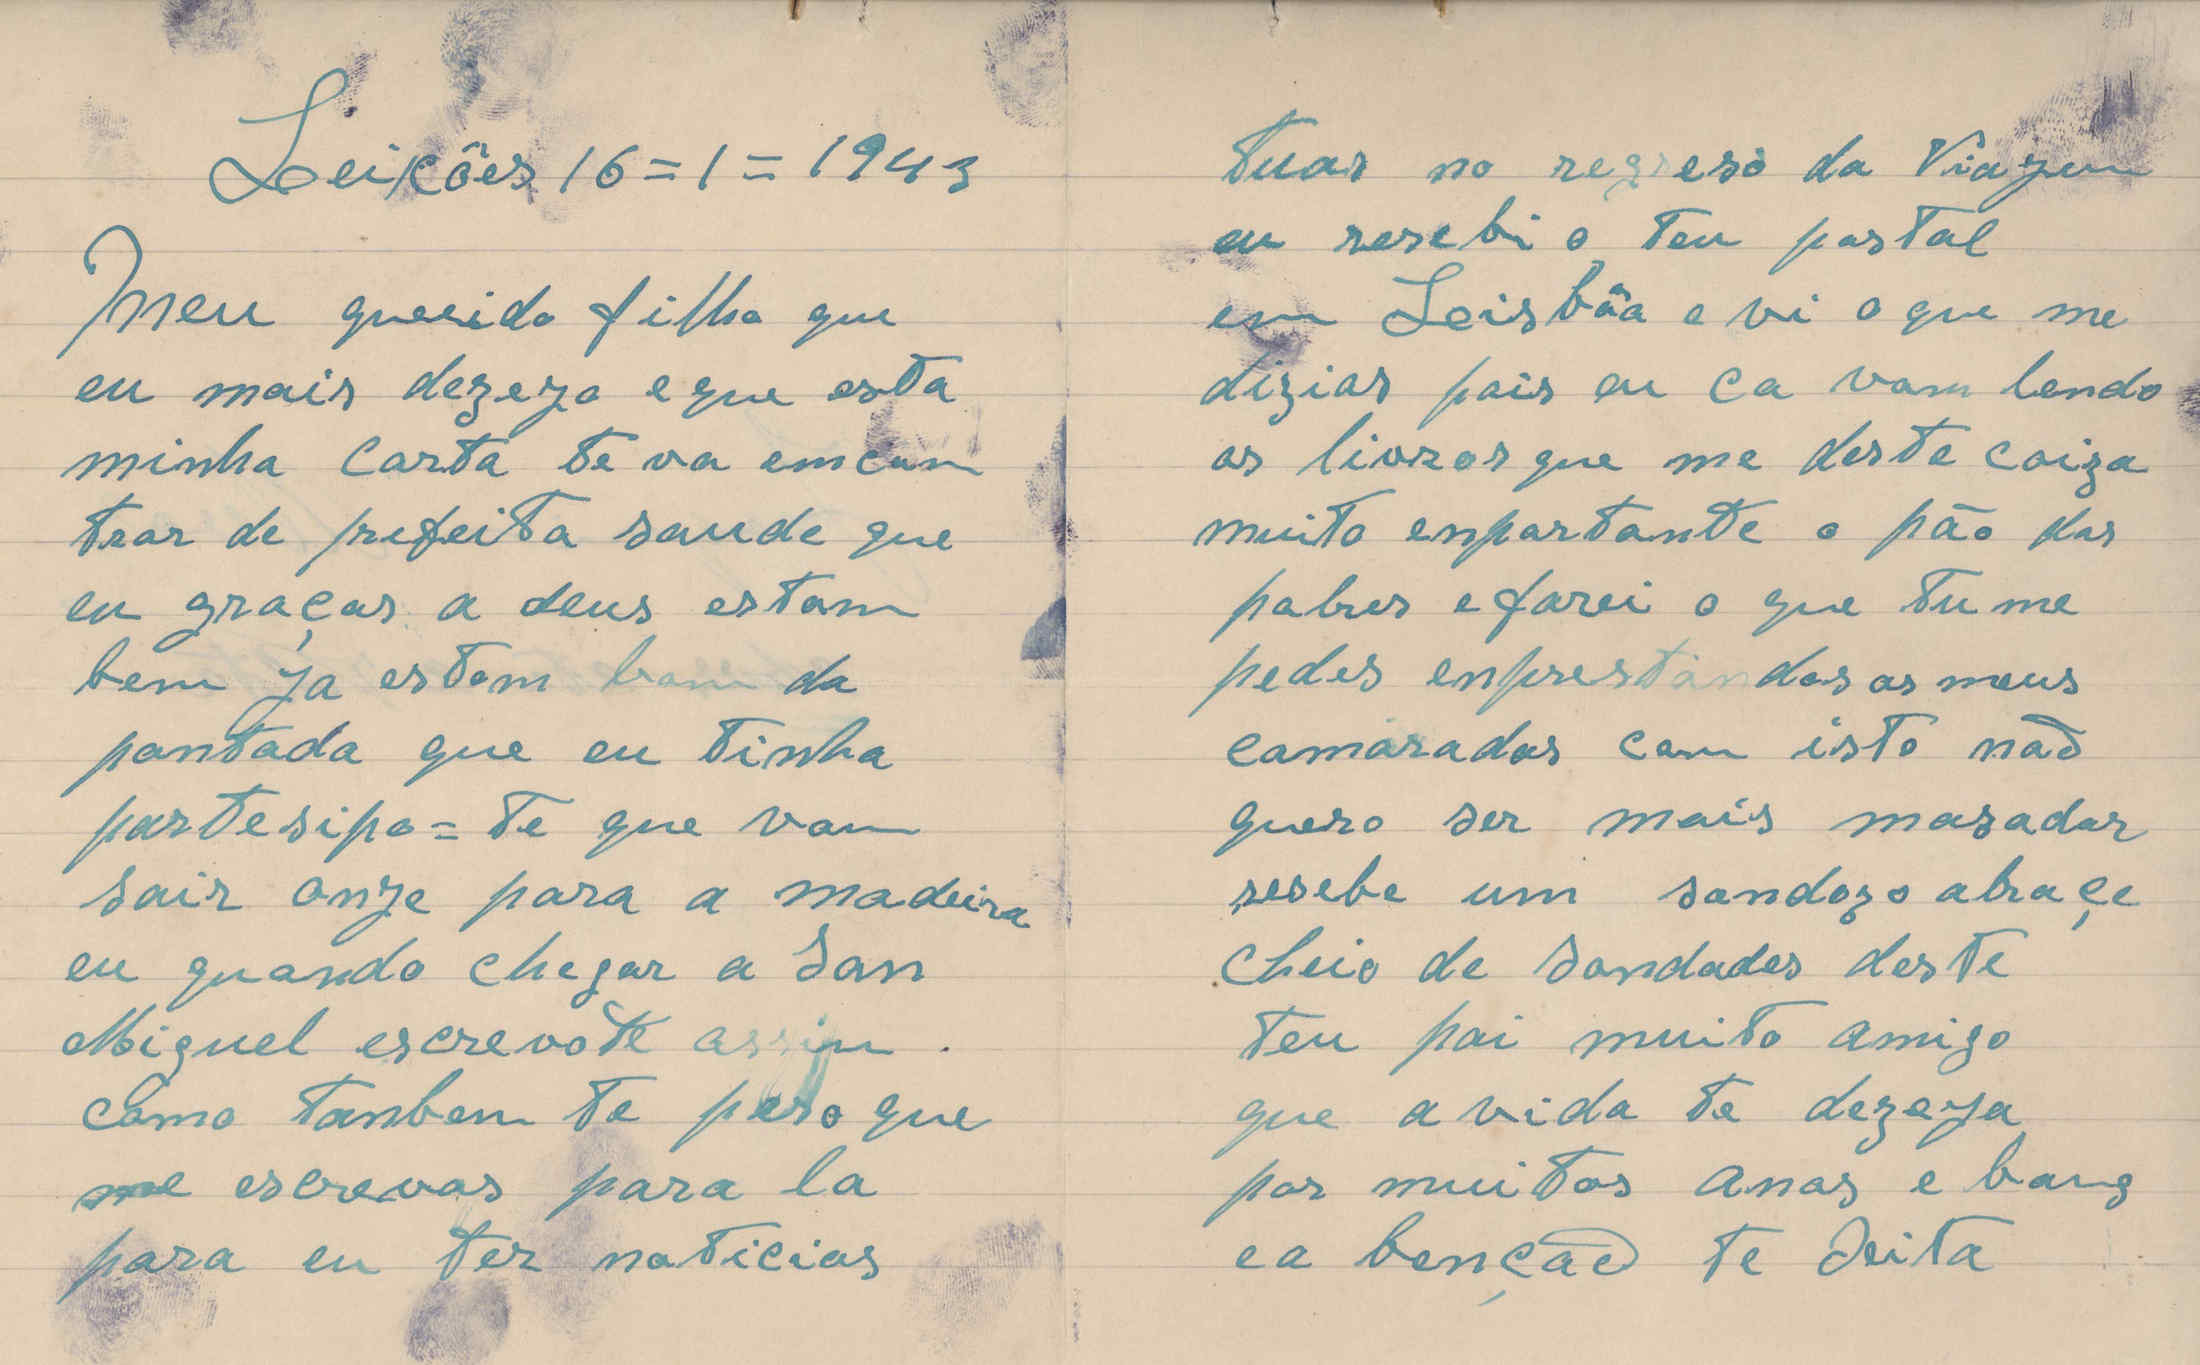 Leikões 16=1=1943
Meu querido filho que
eu mais dezeza e que esta
minha carta te va emcom
trar de prefeita saude que
eu graças a deus estom
bem ja estom bom da
pontada que eu tinha
partesipo=te que vom
sair onze para a madeira
eu quando chegar a San
Miguel escrevote assim
como tanbem te peso que
me escrevas para la
para eu ter noticias
tuas no regreso da Viagem
eu resebi o teu postal
em Leisbõa e vi o que me
dizias pois eu ca vom lendo
os livros que me deste coiza
muito enportante o pão dos
pobres e farei o que tu me
pedes enprestandos os meus
camaradas com isto não
quero ser mais masador
resebe um sondozo abraçe
cheio de sondades deste
teu pai muito amigo
que a vida te dezeja
por muitos anos e bons
e a benção te deita